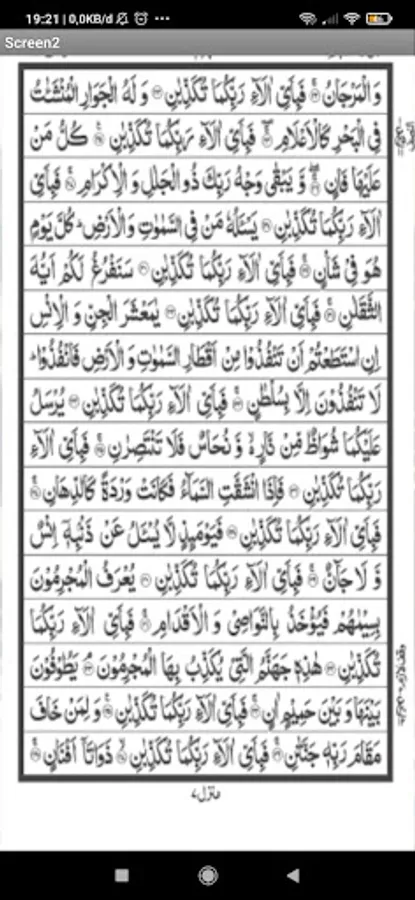 19:21 | 0,0KB/d
Screen2
وَ الْمَرْجَانُ ۚ فَبِاَیِّ اٰلَآءِ رَبِّكُمَا تُكَذِّبٰنِ وَ لَهُ الْجَوَارِ الْمُنْشَـٰٔتُ
فِی الْبَحْرِ كَالْاَعْلَامِ ۚ فَبِاَیِّ اٰلَآءِ رَبِّكُمَا تُكَذِّبٰنِ ۠ كُلُّ مَنْ
عَلَیْهَا فَانٍ ۚۖ وَّ یَبْقٰی وَجْهُ رَبِّكَ ذُو الْجَلٰلِ وَ الْاِكْرَامِ ۚ فَبِاَیِّ
اٰلَآءِ رَبِّكُمَا تُكَذِّبٰنِ یَسْـَٔلُهٗ مَنْ فِی السَّمٰوٰتِ وَ الْاَرْضِ ؕ كُلَّ یَوْمٍ
هُوَ فِیْ شَاْنٍ ۚ فَبِاَیِّ اٰلَآءِ رَبِّكُمَا تُكَذِّبٰنِ سَنَفْرُغُ لَكُمْ اَیُّهَ
الثَّقَلٰنِ ۚ فَبِاَیِّ اٰلَآءِ رَبِّكُمَا تُكَذِّبٰنِ یٰمَعْشَرَ الْجِنِّ وَ الْاِنْسِ
اِنِ اسْتَطَعْتُمْ اَنْ تَنْفُذُوْا مِنْ اَقْطَارِ السَّمٰوٰتِ وَ الْاَرْضِ فَانْفُذُوْا ؕ
لَا تَنْفُذُوْنَ اِلَّا بِسُلْطٰنٍ ۚ فَبِاَیِّ اٰلَآءِ رَبِّكُمَا تُكَذِّبٰنِ یُرْسَلُ
عَلَیْكُمَا شُوَاظٌ مِّنْ نَّارٍ ۙ۬ وَّ نُحَاسٌ فَلَا تَنْتَصِرٰنِ ۚ فَبِاَیِّ اٰلَآءِ
رَبِّكُمَا تُكَذِّبٰنِ فَاِذَا انْشَقَّتِ السَّمَآءُ فَكَانَتْ وَرْدَةً كَالدِّهَانِ ۚ
فَبِاَیِّ اٰلَآءِ رَبِّكُمَا تُكَذِّبٰنِ فَیَوْمَىِٕذٍ لَّا یُسْـَٔلُ عَنْ ذَنْۢبِهٖۤ اِنْسٌ
وَّ لَا جَآنٌّ ۚ فَبِاَیِّ اٰلَآءِ رَبِّكُمَا تُكَذِّبٰنِ یُعْرَفُ الْمُجْرِمُوْنَ
بِسِیْمٰىهُمْ فَیُؤْخَذُ بِالنَّوَاصِیْ وَ الْاَقْدَامِ ۚ فَبِاَیِّ اٰلَآءِ رَبِّكُمَا
تُكَذِّبٰنِ هٰذِهٖ جَهَنَّمُ الَّتِیْ یُكَذِّبُ بِهَا الْمُجْرِمُوْنَ ۘ یَطُوْفُوْنَ
بَیْنَهَا وَ بَیْنَ حَمِیْمٍ اٰنٍ ۚ فَبِاَیِّ اٰلَآءِ رَبِّكُمَا تُكَذِّبٰنِ ۠ وَ لِمَنْ خَافَ
مَقَامَ رَبِّهٖ جَنَّتٰنِ ۚ فَبِاَیِّ اٰلَآءِ رَبِّكُمَا تُكَذِّبٰنِ ۙ ذَوَاتَاۤ اَفْنَانٍ ۚ
منزل ۷